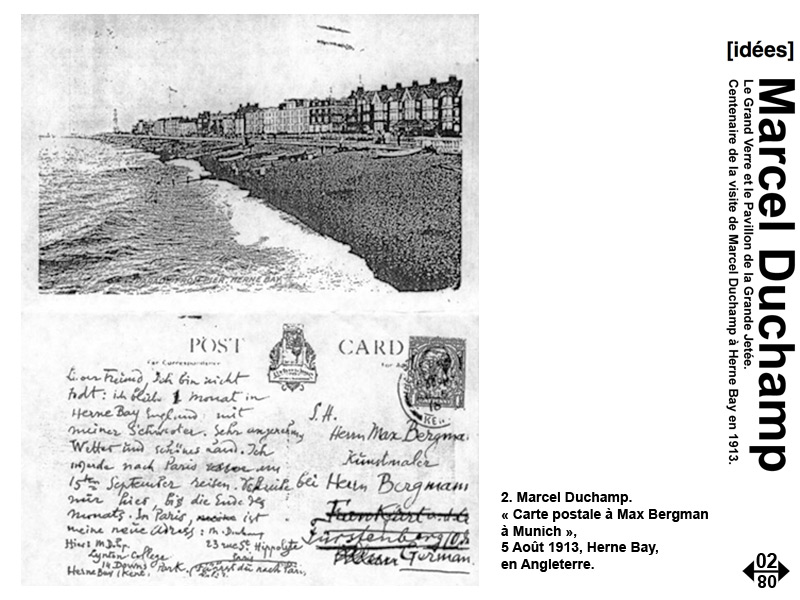 [idées]
Marcel Duchamp
Le Grand Verre et le Pavillon de la Grande Jetée.
Centenaire de la visite de Marcel Duchamp à Herne Bay en 1913.
HERNE BAY
POST CARD
For Correspondence
Lieber Freund, Ich bin nicht
todt: ich bleibe 1 Monat in
Herne Bay England mit
meiner Schwester. Sehr angenehm
Wetter und schönes Land. Ich
werde nach Paris am
15ten September reisen. Schreibe
mir hier, bis die Ende des
monats. In Paris, ist
meine neue Adress: M. Duchamp
23 rue St. Hippolyte
Paris
Hier: M. Dup.
Lynton College
14 Downs Park.
Herne Bay (Kent.
S.H.
Herrn Max Bergma
Kunstmaler
bei Herrn Bergmann
Frankfurt
Fürstenberg
German.
2. Marcel Duchamp.
« Carte postale à Max Bergman
à Munich »,
5 Août 1913, Herne Bay,
en Angleterre.
02
80